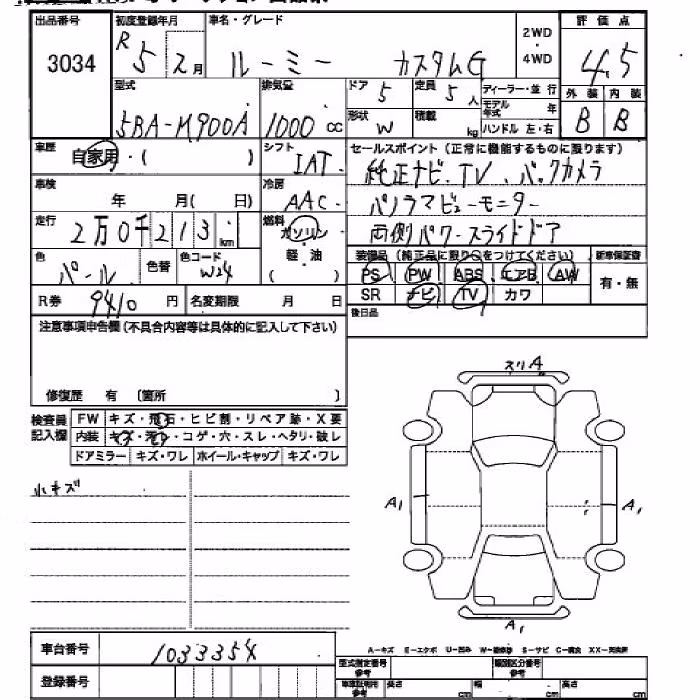 出品番号
3034
初度登録年月
R 5 2月
車名・グレード
ルーミー カスタムG
2WD
・
4WD
評価点
4.5
外装 内装
B B
型式
5BA-M900A
排気量
1000 cc
ドア
5
定員
5人
形状
W
積載
kg
ディーラー・並行
モデル年式 年
ハンドル 左・右
車歴
自家用・( )
シフト
IAT
車検
年 月( 日)
冷房
AAC
走行
2万0千213 km
燃料
ガソリン
軽・油
( )
色
パール
色替
色コード
W24
R券 9410 円
名変期限 月 日
セールスポイント(正常に機能するものに限ります)
純正ナビ.TV.バックカメラ
パノラマビューモニター
両側パワースライドドア
装備品(純正品に限り○をつけてください)
新車保証書
PS PW ABS エアB AW
有・無
SR ナビ TV カワ
後日品
注意事項申告欄(不具合内容等は具体的に記入して下さい)
修復歴 有 〔箇所 〕
検査員
記入欄
FW キズ・飛石・ヒビ割・リペア跡・X要
内装 キズ・汚レ・コゲ・穴・スレ・ヘタリ・破レ
ドアミラー キズ・ワレ ホイール・キャップ キズ・ワレ
小キズ
スリA
A1
A1
A1
車台番号
登録番号
A-キズ E-エクボ U-凹み S-サビ
型式指定番号
参考
類別区分番号
参考
長さ cm
幅 cm
高さ cm